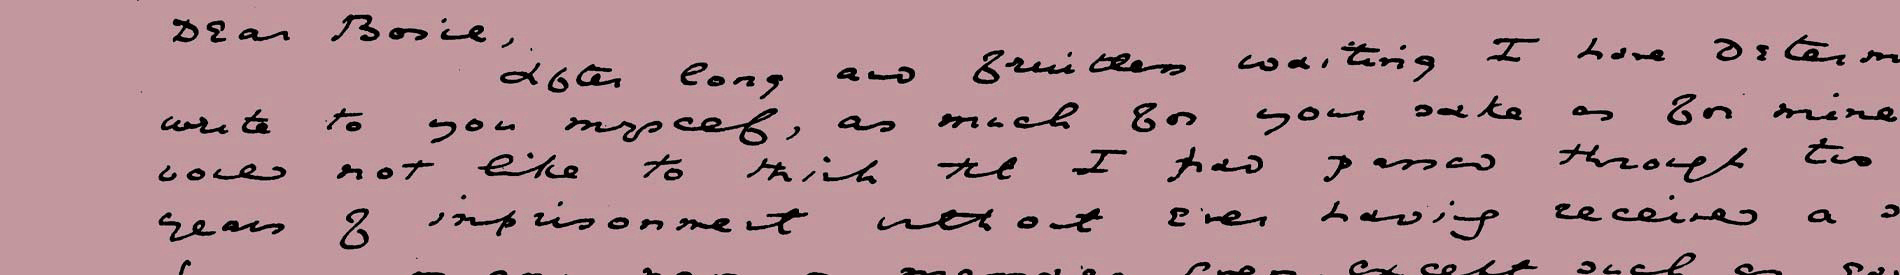 Dear Bosie,
After long and fruitless waiting I have determ
write to you myself, as much for your sake as for mine
would not like to think that I had passed through two
years of imprisonment without ever having received a s
except such as